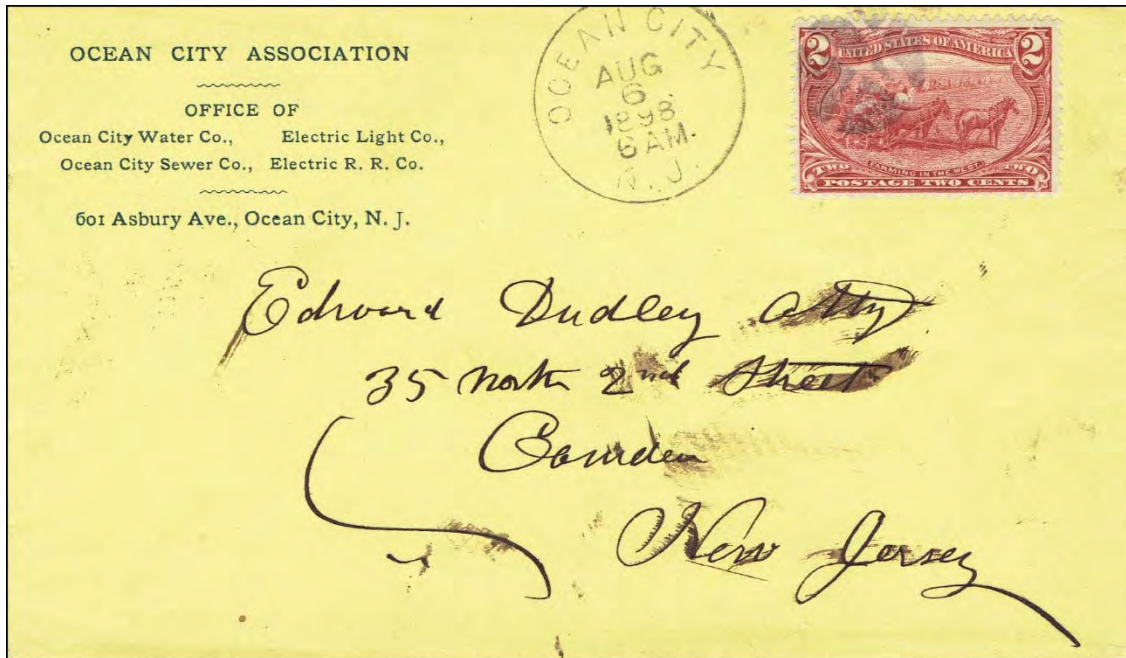 OCEAN CITY ASSOCIATION
OFFICE OF
Ocean City Water Co., Electric Light Co.,
Ocean City Sewer Co., Electric R. R. Co.
601 Asbury Ave., Ocean City, N. J.
OCEAN CITY
AUG
6
1898
6 AM
N. J.
2 2
UNITED STATES OF AMERICA
FARMING IN THE WEST
TWO TWO
POSTAGE TWO CENTS
Edward Dudley Atty
35 North 2nd Street
Camden
New Jersey